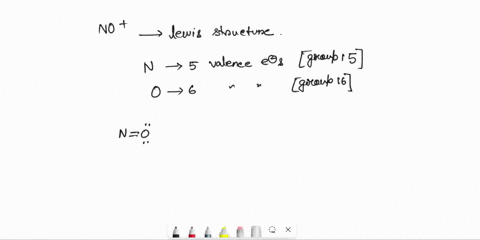 NO⁺ → lewis structure.
N → 5 valence e⊖s [group: 5]
O → 6 " " [group: 6]
N=Ö: